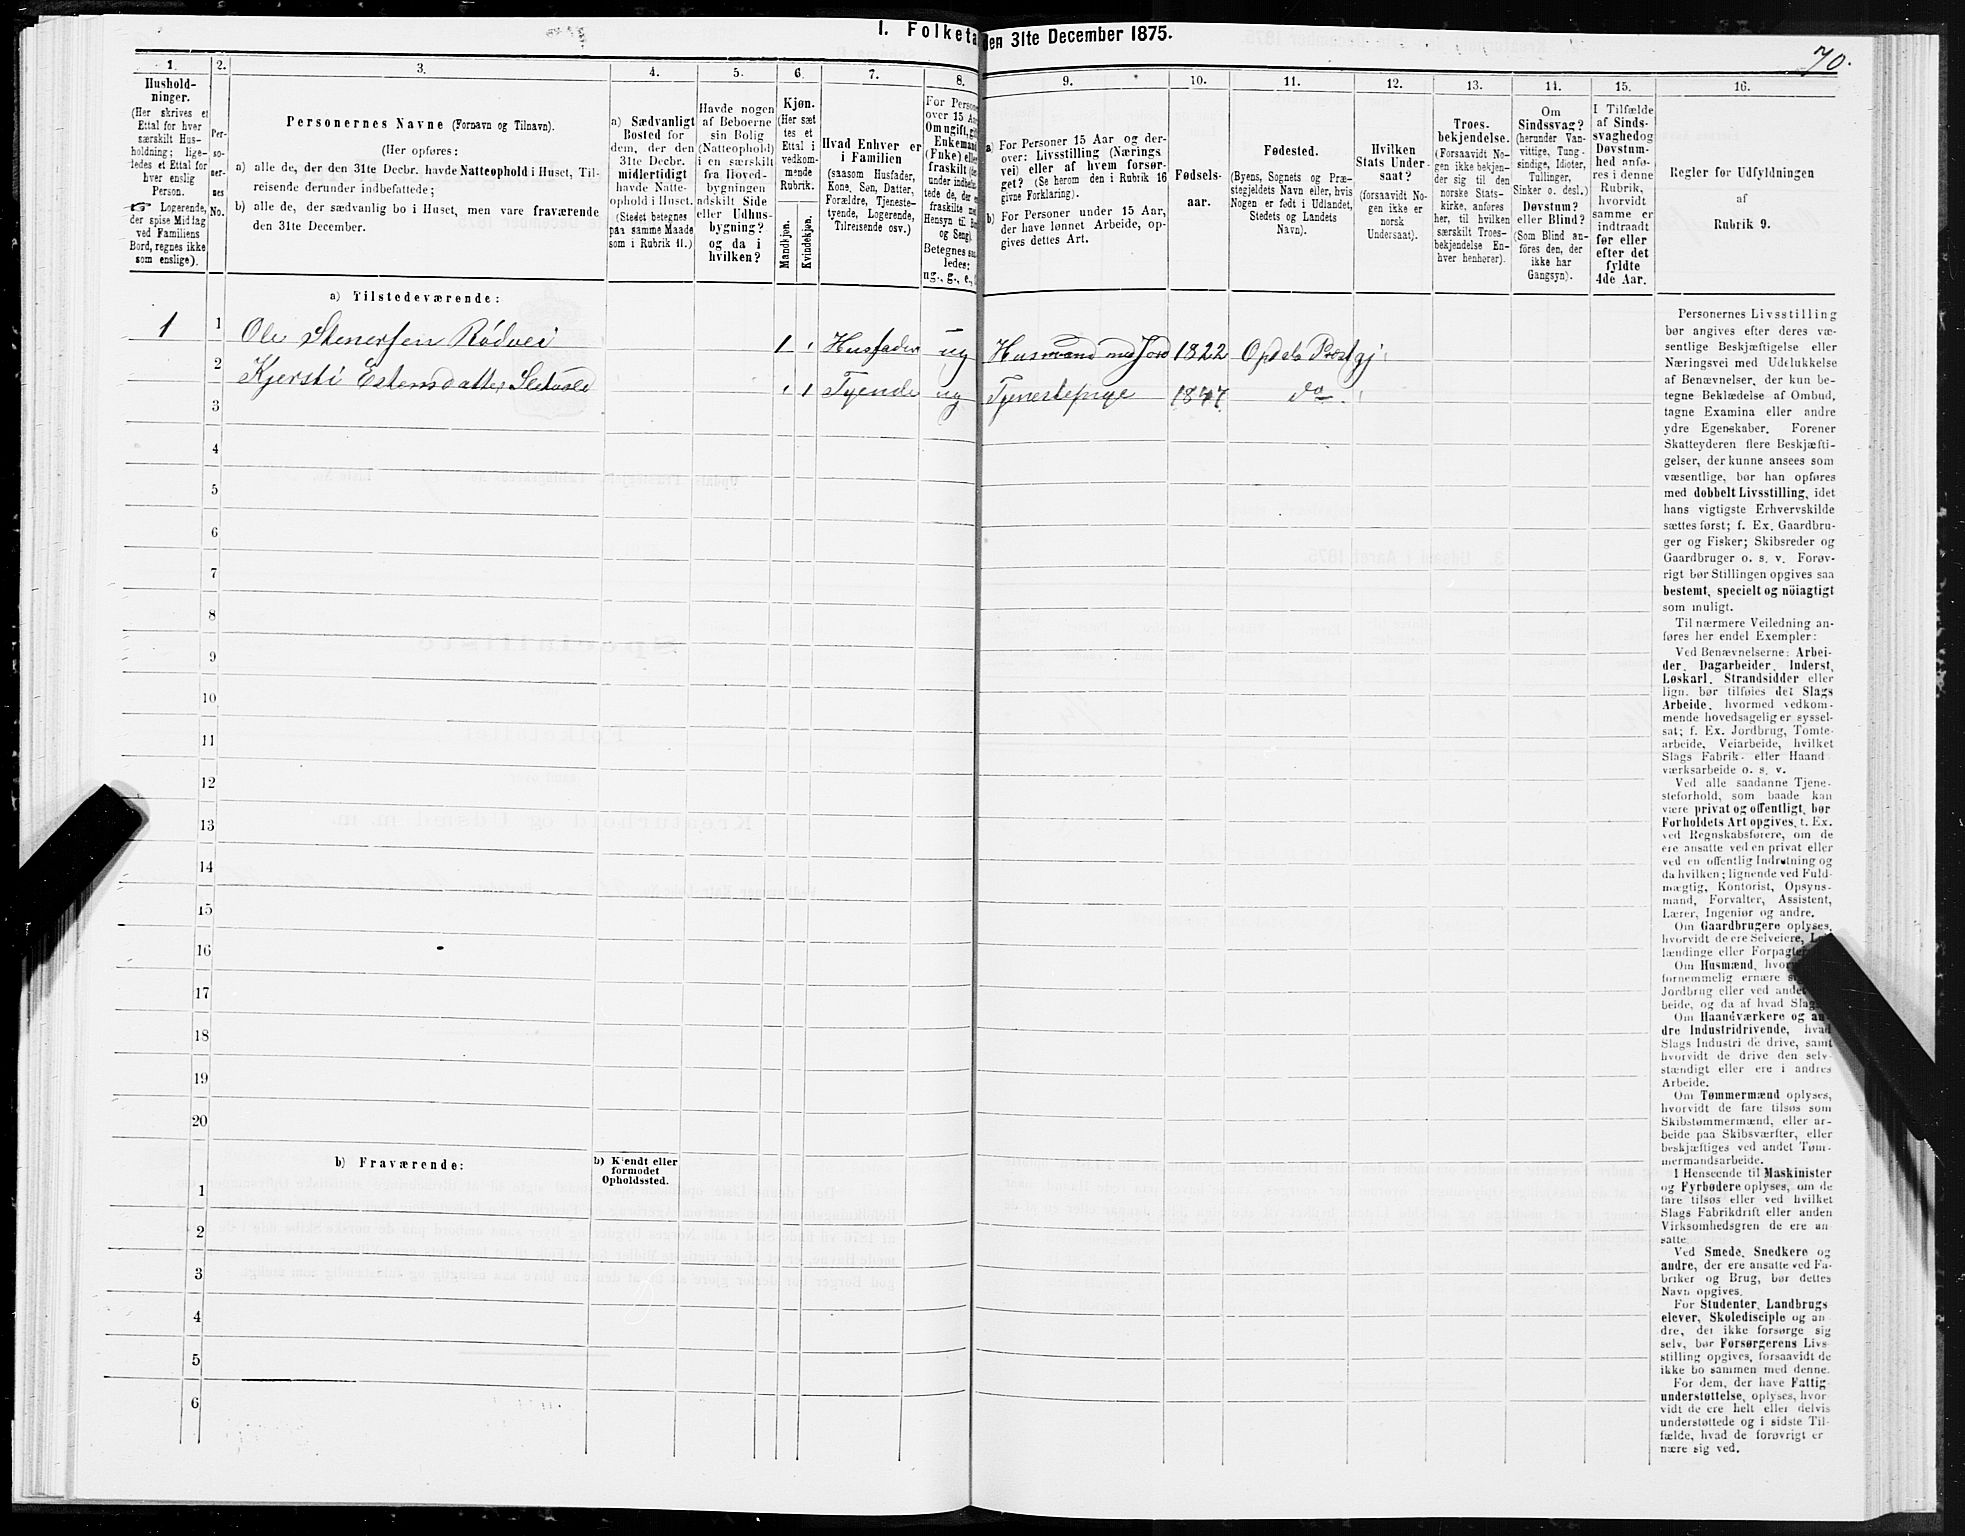 I. Folketa den 31te December 1875.
70.
1.
Hushold-
ninger.
(Her skrives et
Ettal for hver
særskilt Hus-
holdning; lige-
ledes et Ettal for
hver enslig
Person.
Logerende,
der spise Middag
ved Familiens
Bord, regnes ikke
som enslige).
2.
Per-
so-
ner-
nes
No.
3.
Personernes Navne (Fornavn og Tilnavn).
(Her opføres:
a) alle de, der den 31te Decbr. havde Natteophold i Huset, Til-
reisende derunder indbefattede;
b) alle de, der sædvanlig bo i Huset, men vare fraværende
den 31te December.
4.
a) Sædvanligt
Bosted for
dem, der den
31te Decbr.
midlertidigt
havde Natte-
ophold i Huset.
(Stedet betegnes
paa samme Maade
som i Rubrik 11.)
5.
Havde nogen
af Beboerne
sin Bolig
(Natteophold)
i en særskilt
fra Hoved-
bygningen
adskilt Side
eller Udhus-
bygning?
og da i
hvilken?
6.
Kjøn.
(Her sæt
tes et
Ettal i
vedkom-
mende
Rubrik.
Mandkjøn.
Kvindekjøn.
7.
Hvad Enhver er
i Familien
(saasom Husfader,
Kone, Søn, Datter,
Forældre, Tjeneste-
tyende, Logerende,
Tilreisende osv.)
8.
For Person
over 15 Aa
Om ugift, gift
Enkemand
(Enke) eller
fraskilt
Betegnes saa
ledes:
ug., g., e.,
9.
a) For Personer 15 Aar og der-
over: Livsstilling (Nærings
vei) eller af hvem forsør-
get? (Se herom den i Rubrik 16
givne Forklaring).
b) For Personer under 15 Aar,
der have lønnet Arbeide, op-
gives dettes Art.
10.
Fødsels-
aar.
11.
Fødested.
(Byens, Sognets og Præ-
stegjeldets Navn eller, hvis
Nogen er født i Udlandet,
Stedets og Landets
Navn).
12.
Hvilken
Stats Under-
saat?
(forsaavidt No-
gen ikke er
norsk
Undersaat).
13.
Troes-
bekjendelse.
(Forsaavidt No-
gen ikke bekjen-
der sig til den
norske Stats-
kirke, anføres
her, til hvilken
særskilt Troes-
bekjendelse En-
hver henhører).
14.
Om
Sindssvag?
(herunder Van-
vittige, Tung-
sindige, Idioter,
Tullinger,
Sinker o. desl.)
Døvstum?
eller Blind?
(Som Blind an-
føres den, der
ikke har
Gangsyn).
15.
I Tilfælde
af Sinds-
svaghed og
Døvstum-
hed anfø-
res i denne
Rubrik,
hvorvidt
samme er
indtraadt
før eller
efter det
fyldte
4de Aar.
16.
Regler for Udfyldningen
af
Rubrik 9.
a) Tilstedeværende:
1 1 Ole Stenersen Rödvei 1 Husfader ug Husmand med Jord 1822 Opdals Prestgj
2 Kjersti Estensdatter 1 Tyende ug Tjenestepige 1847 do
3
4
5
6
7
8
9
10
11
12
13
14
15
16
17
18
19
20
b) Fraværende:
b) Kjendt eller
formodet
Opholdssted.
1
2
3
4
5
6
Personernes Livsstilling
bør angives efter deres væ-
sentlige Beskjæftigelse eller
Næringsvei med Udelukkelse
af Benævnelser, der kun be-
tegne Beklædelse af Ombud,
tagne Examina eller andre
ydre Egenskaber. Forener
Skatteyderen flere Beskjæfti-
gelser, der kunne ansees som
væsentlige, bør han opføres
med dobbelt Livsstilling, idet
hans vigtigste Erhvervskilde
sættes først; f. Ex. Gaardbru-
ger og Fisker; Skibsreder og
Gaardbruger o. s. v. Forøv-
rigt bør Stillingen opgives saa
bestemt, specielt og nöiagtigt
som muligt.
Til nærmere Veiledning an-
føres her endel Exempler:
Ved Benævnelserne: Arbei-
der, Dagarbeider, Inderst,
Løskarl, Strandsidder eller
lign. bør tilføies det Slags
Arbeide, hvormed vedkom-
mende hovedsagelig er syssel-
sat; f. Ex. Jordbrug, Tomte-
arbeide, Veiarbeide, hvilket
Slags Fabrik- eller Haand
værksarbeide o. s. v.
Ved alle saadanne Tjene-
steforhold, som baade kan
være privat og offentligt, bør
Forholdets Art opgives, t. Ex.
ved Regnskabsførere, om de
ere ansatte ved en privat eller
ved en offentlig Indretning og
da hvilken; lignende ved Fuld-
mægtig, Kontorist, Opsyns-
mand, Forvalter, Assistent,
Lærer, Ingeniør og andre.
Om Gaardbrugere oplyses,
hvorvidt de ere Selveiere, Lei
lændinge eller Forpagtere
Om Husmænd, hvor
fornemmelig ernære s
Jordbrug eller ved andet
beide, og da af hvad Slags
Om Haandværkere og an-
dre Industridrivende, hvad
Slags Industri de drive, samt
hvorvidt de drive den selv-
stændigt eller ere i andres
Arbeide.
Om Tømmermænd oplyses,
hvorvidt de fare tilsøs som
Skibstømmermænd, eller ar-
beide paa Skibsværfter, eller
beskjæftiges ved andet Tøm-
mermandsarbeide.
I Henseende til Maskinister
og Fyrbødere oplyses, om de
fare tilsøs eller ved hvilket
Slags Fabrikdrift eller anden
Virksomhedsgren de ere an-
satte
Ved Smede, Snedkere og
andre, der ere ansatte ved Fa-
briker og Brug, bør dettes
Navn opgives.
For Studenter, Landbrugs
elever, Skoledisciple og an
dre, der ikke forsørge sig
selv, bør Forsørgerens Livs-
stilling opgives, forsaavidt de
ikke bo sammen med denne.
For dem, der have Fattig
understøttelse, oplyses, hvor
vidt de ere helt eller delvis
understøttede og i sidste Til-
fælde, hvad de forøvrigt er
nære sig ved.